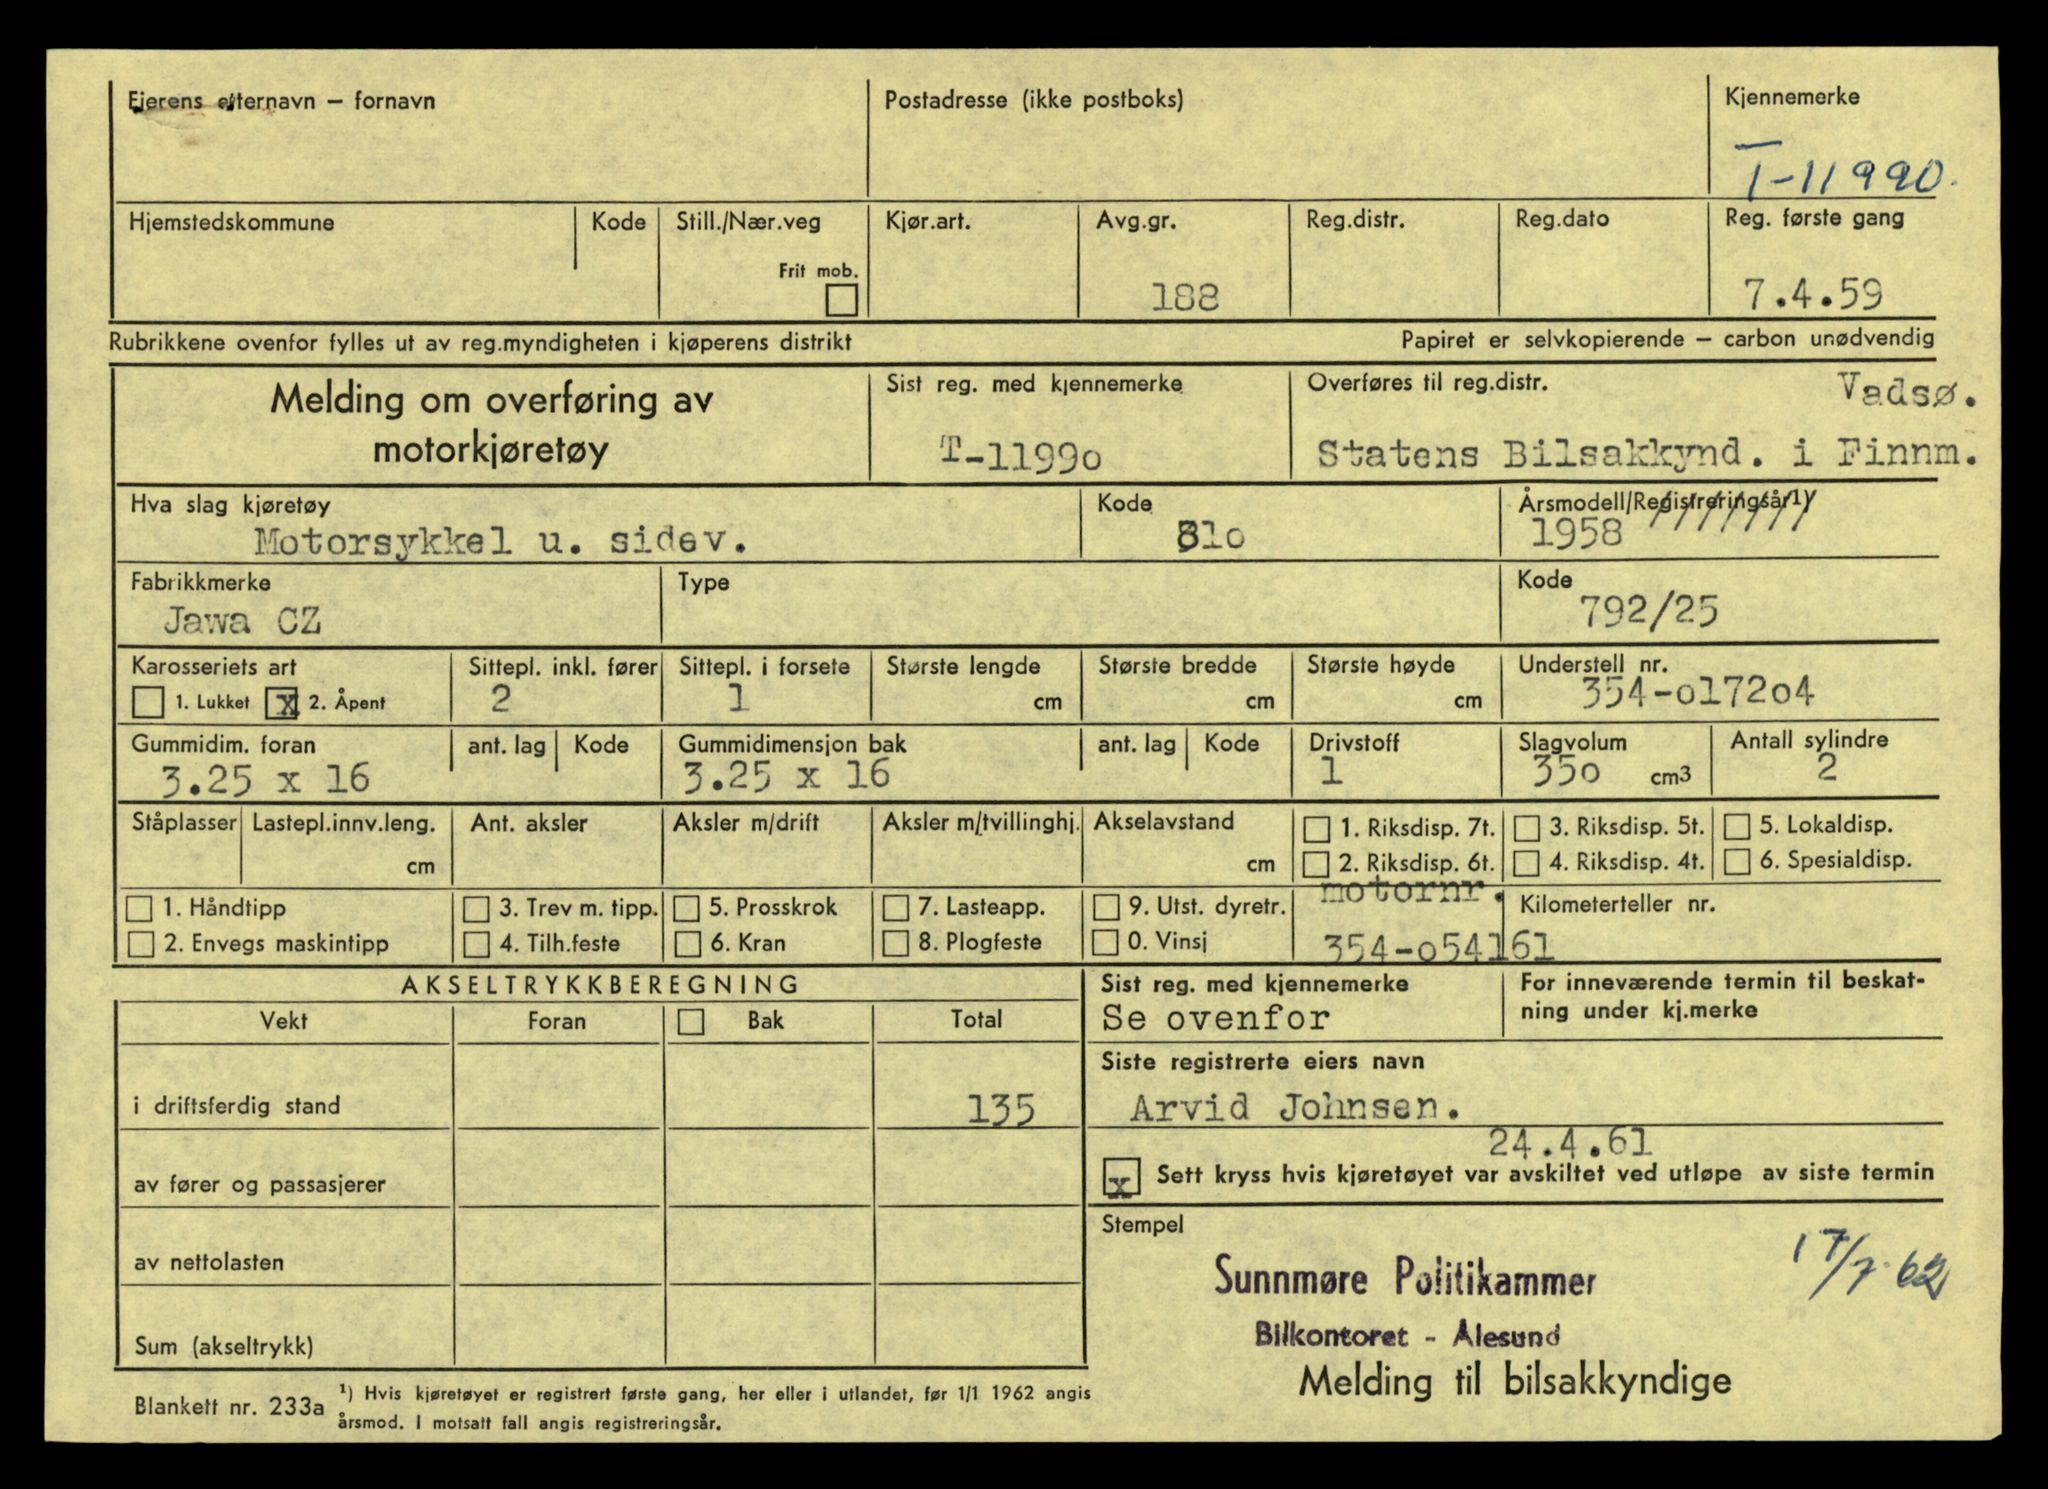 Eierens etternavn – fornavn
Postadresse (ikke postboks)
Kjennemerke
T-11990.
Hjemstedskommune
Kode
Still./Nær.veg
Frit mob.
Kjør.art.
Avg.gr.
188
Reg.distr.
Reg.dato
Reg. første gang
7.4.59
Rubrikkene ovenfor fylles ut av reg.myndigheten i kjøperens distrikt
Papiret er selvkopierende – carbon unødvendig
Melding om overføring av
motorkjøretøy
Sist reg. med kjennemerke
T-11990
Overføres til reg.distr.
Vadsø.
Statens Bilsakkynd. i Finnm.
Hva slag kjøretøy
Motorsykkel u. sidev.
Kode
810
Årsmodell/Registreringsår1)
1958
Fabrikkmerke
Jawa CZ
Type
Kode
792/25
Karosseriets art
1. Lukket x 2. Åpent
Sittepl. inkl. fører
2
Sittepl. i forsete
1
Største lengde
cm
Største bredde
cm
Største høyde
cm
Understell nr.
354-o172o4
Gummidim. foran
3.25 x 16
ant. lag
Kode
Gummidimensjon bak
3.25 x 16
ant. lag
Kode
Drivstoff
1
Slagvolum
35o cm3
Antall sylindre
2
Ståplasser
Lastepl.innv.leng.
cm
Ant. aksler
Aksler m/drift
Aksler m/tvillinghj.
Akselavstand
cm
1. Riksdisp. 7t.
2. Riksdisp. 6t.
3. Riksdisp. 5t.
4. Riksdisp. 4t.
5. Lokaldisp.
6. Spesialdisp.
1. Håndtipp
2. Envegs maskintipp
3. Trev m. tipp.
4. Tilh.feste
5. Prosskrok
6. Kran
7. Lasteapp.
8. Plogfeste
9. Utst. dyretr.
0. Vinsj
motornr.
354-o54161
Kilometerteller nr.
AKSELTRYKKBEREGNING
Vekt
Foran
Bak
Total
i driftsferdig stand
135
av fører og passasjerer
av nettolasten
Sum (akseltrykk)
Sist reg. med kjennemerke
Se ovenfor
For inneværende termin til beskat-
ning under kj.merke
Siste registrerte eiers navn
Arvid Johnsen.
24.4.61
x Sett kryss hvis kjøretøyet var avskiltet ved utløpe av siste termin
Stempel
17/7.62
Sunnmøre Politikammer
Bilkontoret - Ålesund
Melding til bilsakkyndige
Blankett nr. 233a
1) Hvis kjøretøyet er registrert første gang, her eller i utlandet, før 1/1 1962 angis
årsmod. I motsatt fall angis registreringsår.